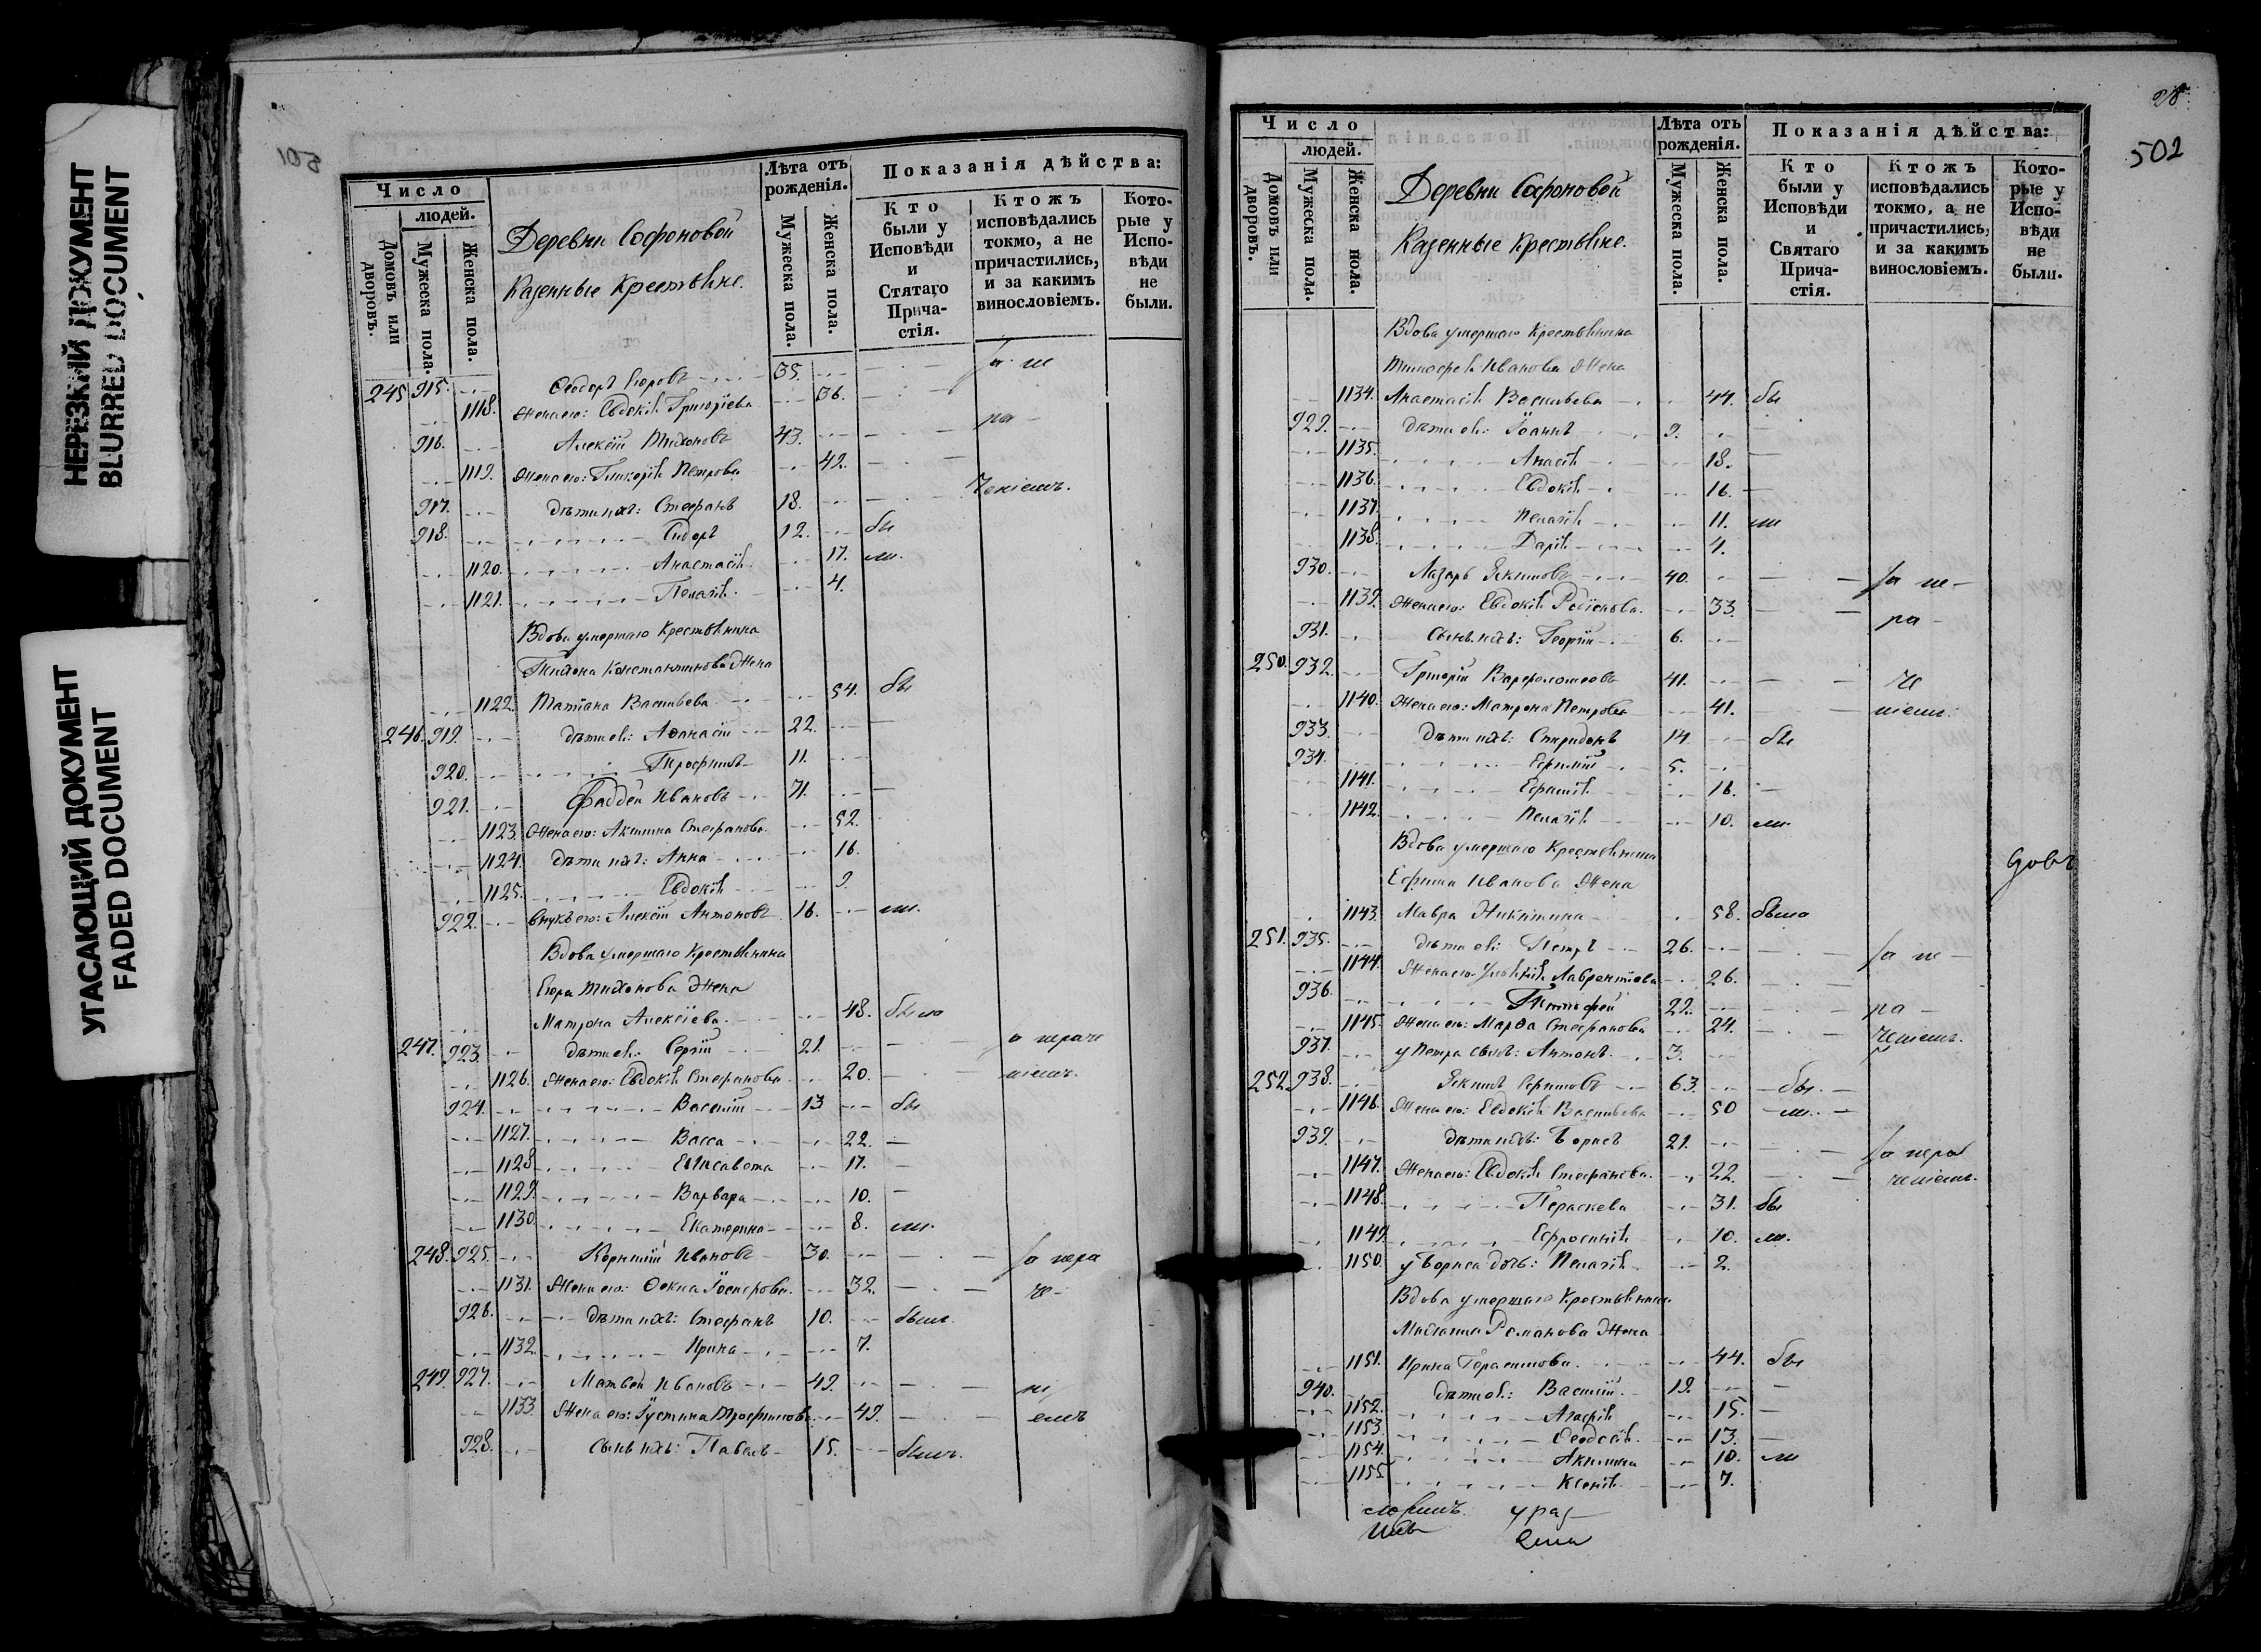 НЕРЕЗКИЙ ДОКУМЕНТ
BLURRED DOCUMENT
УГАСАЮЩИЙ ДОКУМЕНТ
FADED DOCUMENT
501
Число
людей.
Домовъ или дворовъ.
Мужеска пола.
Женска пола.
Деревни Софоновой
Казенные Крестьяне.
Лѣта отъ рожденія.
Мужеска пола.
Женска пола.
Показанія дѣйства:
Кто были у Исповѣди и Стятаго Прича-стія.
Ктожъ исповѣдались токмо, а не причастились, и за какимъ винословіемъ.
Кото-рые у Испо-вѣди не были.
245 915. Ѳеодоръ Егоровъ 35. за не
1118. Жена его: Евдокія Григоріева 36.
916. Алексій Тихоновъ 43. ра-
1119. Жена его: Гликерія Петрова 42.
917. дѣти ихъ: Стефанъ 18. ченіемъ.
918. Сидоръ 12. бы
1120. Анастасія 17. ли.
1121. Пелагія 4.
Вдова умершаго Крестьянина
Тихона Константинова Жена
1122. Татіана Васильева 54. бы
246. 919. дѣти ея: Аѳанасій 22.
920. Трофимъ 11.
921. Фаддей Ивановъ 71.
1123. Жена его: Акилина Стефанова 52.
1124. дѣти ихъ: Анна 16.
1125. Евдокія 9.
922. Внукъ его: Алексій Антоновъ 16. ли.
Вдова умершаго Крестьянина
Егора Тихонова Жена
Матрона Алексіева 48. была
247. 923. дѣти ея: Сергій 21.
1126. Жена его: Евдокія Стефанова 20. ніемъ.
924. Василій 13 бы
1127. Васса 22.
1128. Елисавета 17.
1129. Варвара 10.
1130. Екатерина 8. ли.
248. 925. Корнилій Ивановъ 30. за нера
1131. Жена его: Ѳекла Іосифова 32. че-
926. дѣти ихъ: Стефанъ 10. были.
1132. Ирина 7.
249. 927. Матвей Ивановъ 49. ні
1133. Жена его: Іустина Трофимова 49. емъ
928. Сынъ ихъ: Павелъ 15. былъ.
28
502
Число
людей.
Домовъ или дворовъ.
Мужеска пола.
Женска пола.
Деревни Софоновой
Казенные Крестьяне.
Лѣта отъ рожденія.
Мужеска пола.
Женска пола.
Показанія дѣйства:
Кто были у Исповѣди и Святаго Прича-стія.
Ктожъ исповѣдались токмо, а не причастились, и за какимъ винословіемъ.
Кото-рые у Испо-вѣди не были.
Вдова умершаго Крестьянина
Тимофея Иванова Жена
1134. Анастасія Васильева 44. бы
929. дѣти ея: Іоаннъ 9.
1135. 18.
1136. Евдокія 16.
1137. Пелагія 11. ли
1138. Дарія 4.
930. Лазарь Якимовъ 40. за не-
1139. Жена его: Евдокія Родіонова 33.
931. Сынъ ихъ: Георгій 6. ра-
250. 932. Григорій Варфоломеевъ 41. че
1140. Жена его: Матрона Петрова 41. ніемъ.
933. Дѣти ихъ: Спиридонъ 14. бы
934. Ефимій 5.
1141. Ефимія 16.
1142. Пелагія 10. ли.
Вдова умершаго Крестьянина
Ефима Иванова Жена
1143. Мавра Никитина 58. была
251. 935. дѣти ея: Петръ 26. за не-
1144. Жена его Лаврентіева 26.
936. Тимофей 22. ра-
1145. Жена его: Марѳа Стефанова 24. ченіемъ.
937. у Петра сынъ: Антонъ 3.
252. 938. Якимъ Ефимовъ 63. бы
1146. Жена его: Евдокія Васильева 50 ли.
939. дѣти ихъ: Борисъ 21. за нера
1147. Жена его: Евдокія Стефанова 22. ченіемъ.
1148. Параскева 31. бы
1149. Ефросинія 10. ли.
1150. у Бориса дочь: Пелагія 2.
Вдова умершаго Крестьянина
Романова Жена
1151. Ирина Герасимова 44. бы
940. дѣти ея: Василій 19.
1152. Агафія 15.
1153. Ѳеодосія 13.
1154. Акилина 10. ли
1155 Ксенія 7.